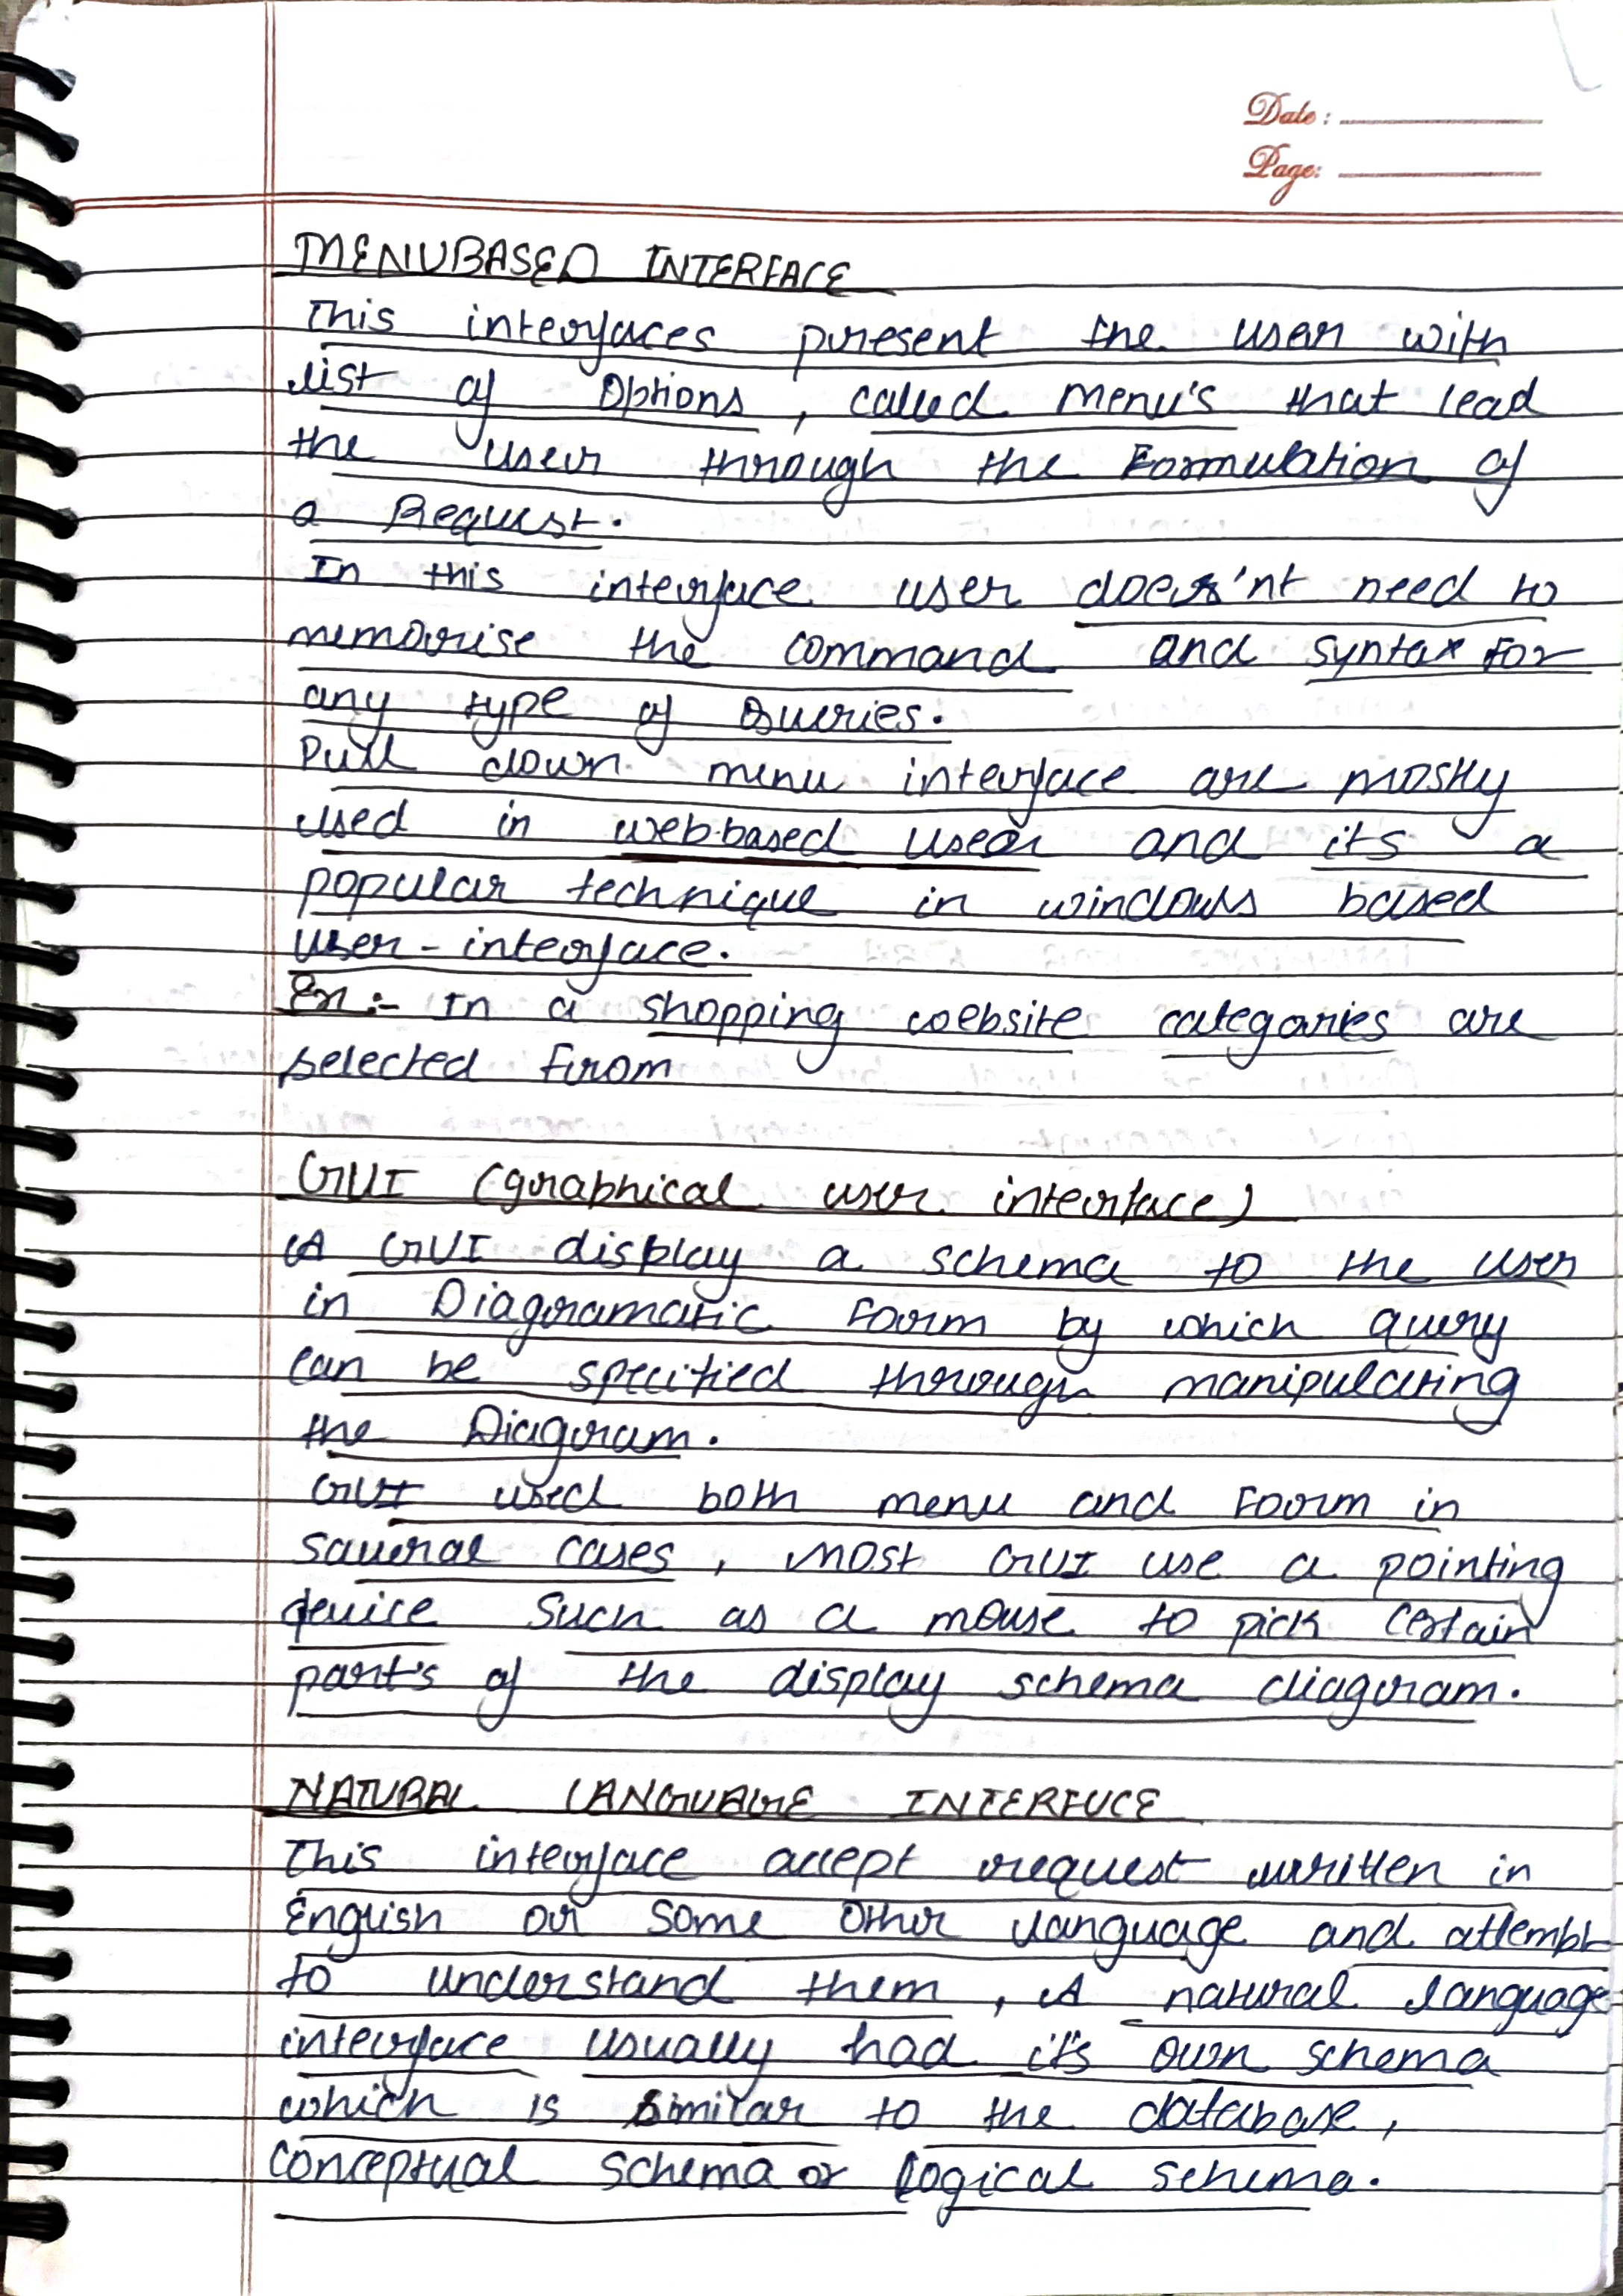 Date :
Page:
MENUBASED INTERFACE
This interfaces present the user with
list of options , called menu's that lead
the user through the Formulation of
a Request.
In this interface user does'nt need to
memorise the command and syntax For
any type of Queries.
Pull down menu interface are mostly
used in web-based user and its a
popular technique in windows based
user - interface.
Ex:- In a shopping website categories are
selected from
GUI (graphical user interface)
A GUI display a schema to the user
in Diagramatic Form by which query
can be specified through manipulating
the Diagram.
GUI used both menu and Form in
saveral cases , most GUI use a pointing
device such as a mouse to pick certain
part's of the display schema diagram.
NATURAL LANGUAGE INTERFUCE
This interface accept request written in
English or some other language and attempt
to understand them , A natural language
interface usually had it's own schema
which is similar to the database ,
conceptual schema or logical schema.